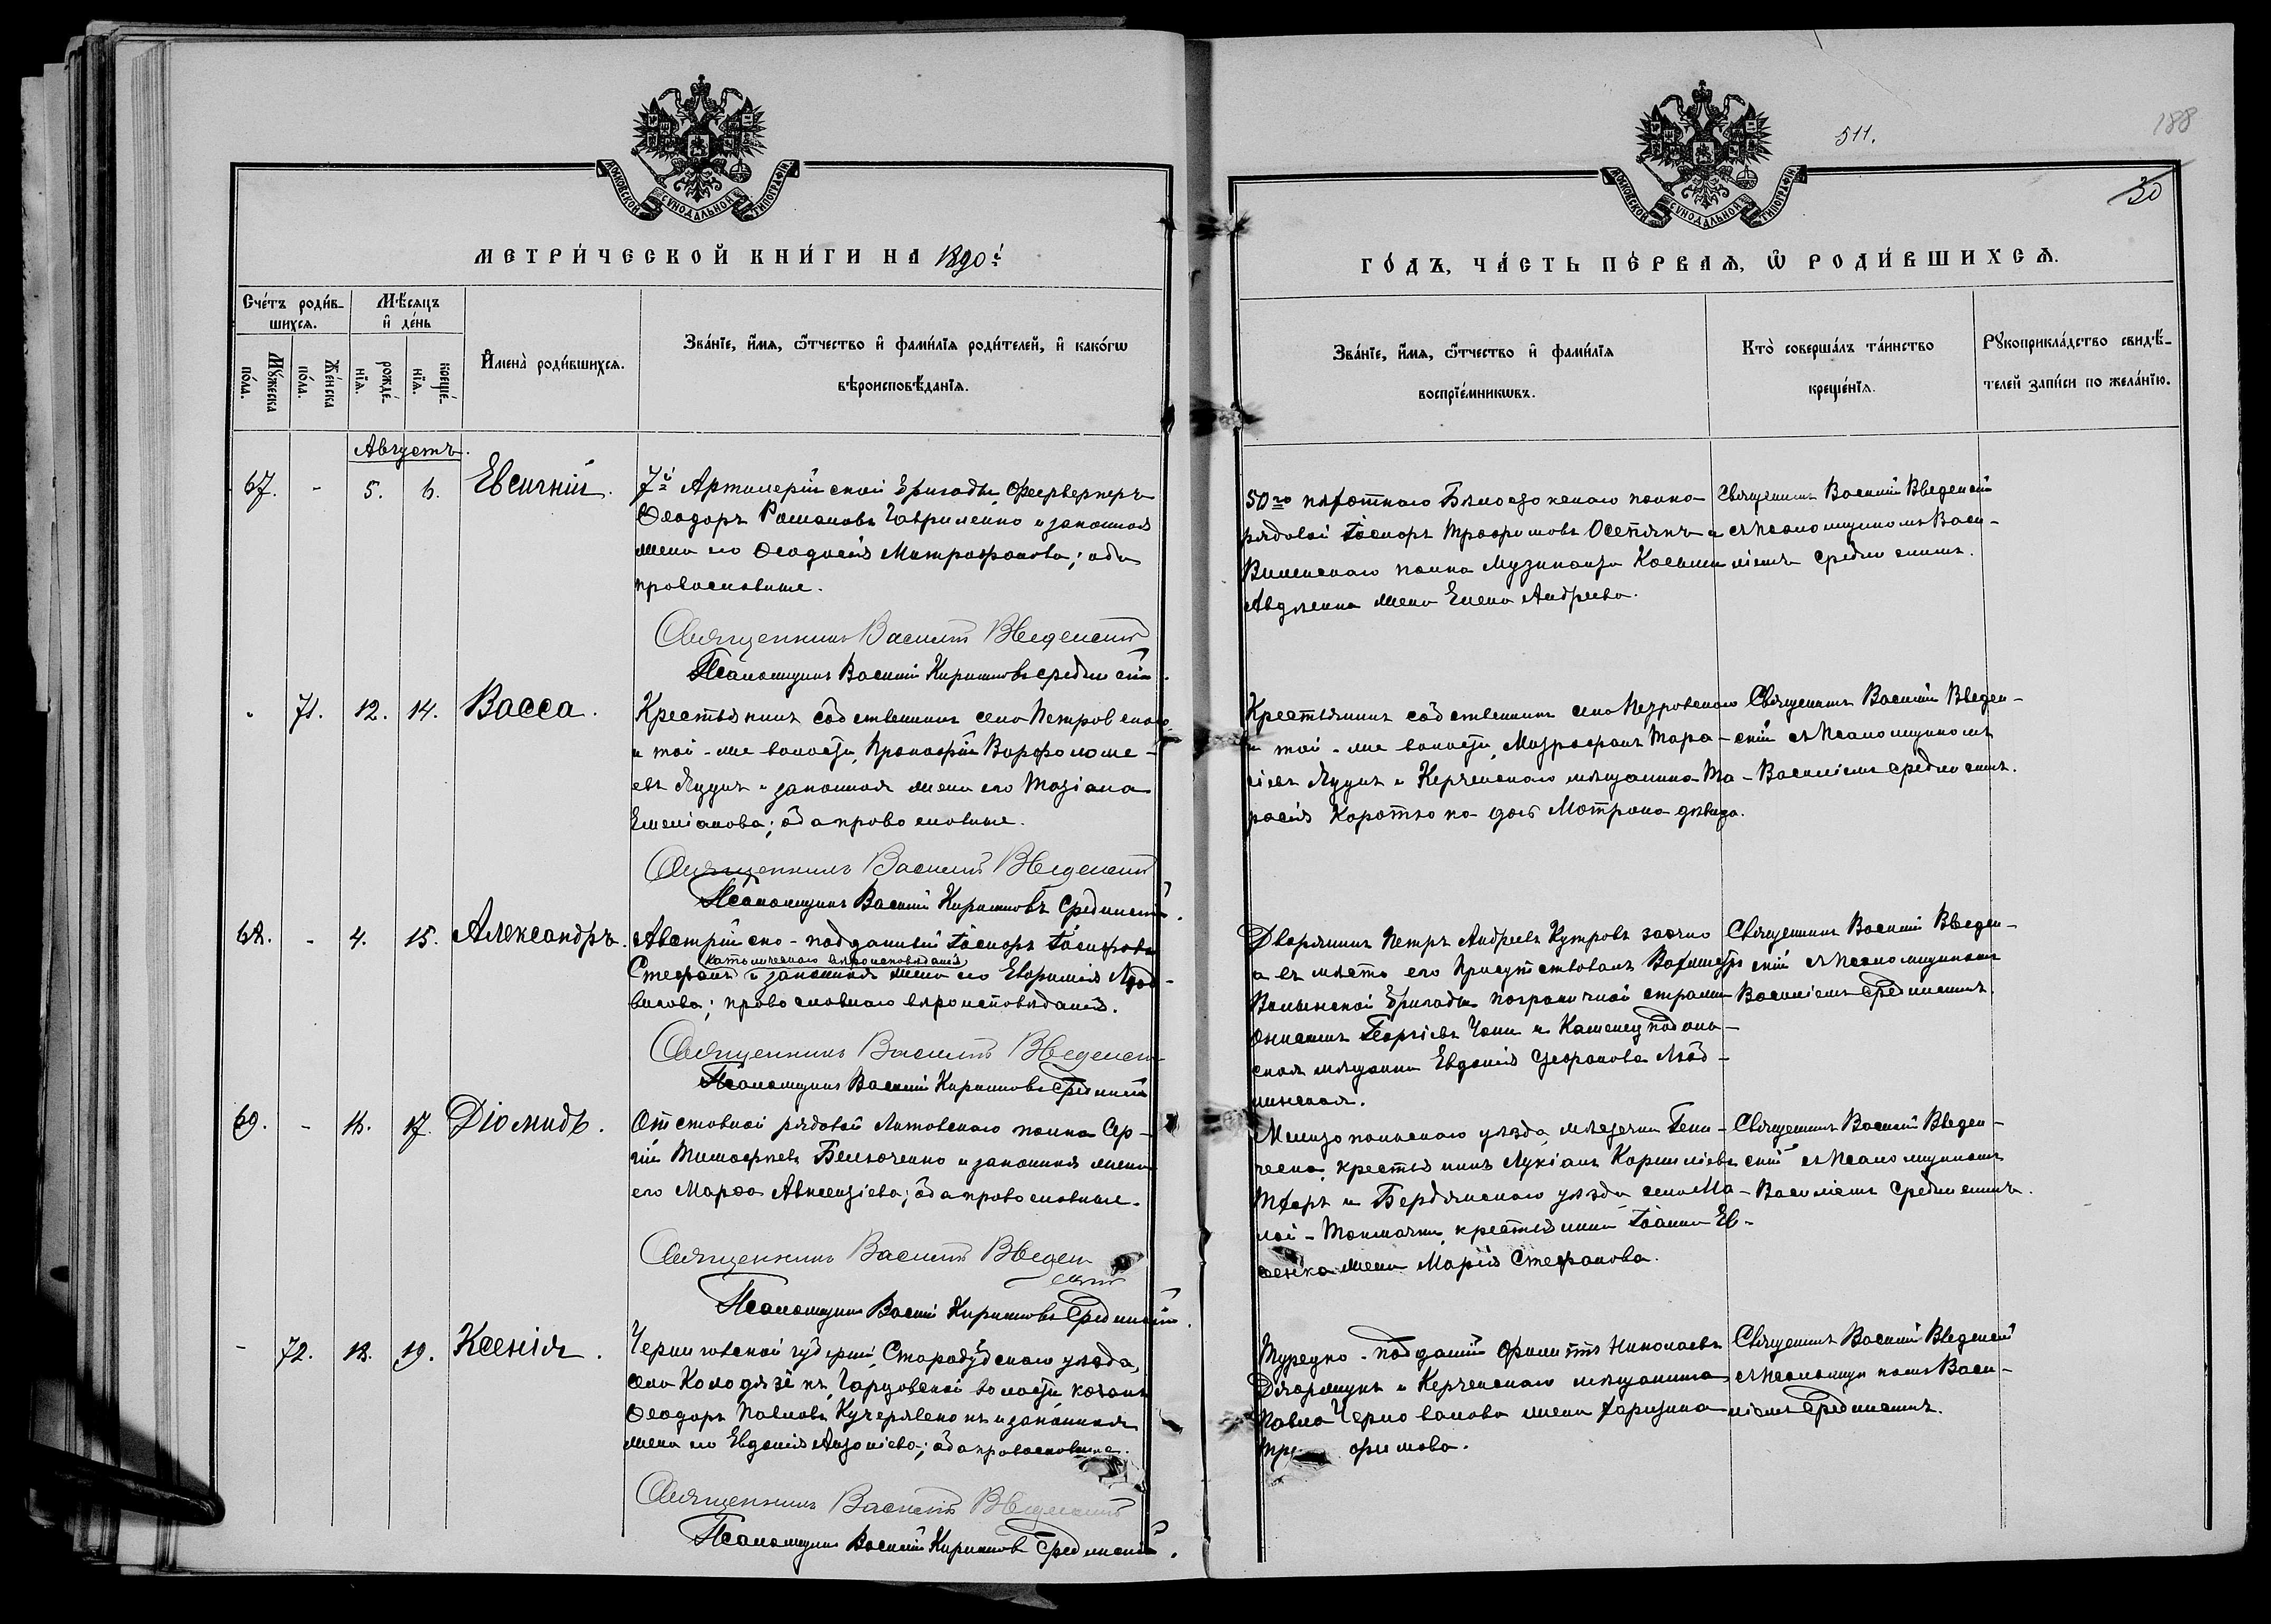 МОСКОВСКОЙ СѴНОДАЛЬНОЙ ТИПОГРАФІИ
МЕТРИ́ЧЕСКОЙ КНИ́ГИ НА 1890й
Сче́тъ роди́в-
шихсѧ.
Мѣ́сѧцъ
и҆ де́нь
Мꙋ́жеска
по́ла.
Же́нска
по́ла.
рожде́-
нїѧ.
креще́-
нїѧ.
И҆мена̀ роди́вшихсѧ.
Зва́нїе, и҆́мѧ, ѻ҆́тчество и҆ фами́лїѧ роди́телей, и҆ како́гѡ
вѣроисповѣ́данїѧ.
Августъ.
67. - 5. 6. Евсигній.
7й Артилерійской бригады Феерверкеръ
Ѳеодоръ Романовъ Гавриленко и законная
жена его Ѳеодосія Митрофанова; оба
православные.
Священникъ Василій Введенскій
Псаломщикъ Василій Кириловъ Срединскій.
" 71. 12. 14. Васса.
Крестьянинъ собственникъ села Петровскаго
и той-же волости, Прокофій Варфоломе-
евъ Яцунъ и законная жена его Татіана
Емеліанова; оба православные.
Священникъ Василій Введенскій
Псаломщикъ Василій Кириловъ Срединскій.
68. - 4. 15. Александръ.
Австрійско-подданный Іосифъ Іосифовъ
католическаго вѣроисповѣданія
Стефанъ и законная жена его Евфимія
православнаго вѣроисповѣданія.
Священникъ Василій Введенскій
Псаломщикъ Василій Кириловъ Срединскій
69. - 16. 17. Діомидъ.
Отставной рядовой Литовскаго полка Сер-
гій Тимофеевъ Белюченко и законная жена
его Марѳа Авксентіева; оба православные.
Священникъ Василій Введен
скій
Псаломщикъ Василій Кириловъ Срединскій.
- 72. 18. 19. Ксенія.
Черниговской губерніи, Стародубскаго уѣзда,
села Колодязёкъ, Гарцовской волости козакъ
Ѳеодоръ Павловъ Кучерявенокъ и законная
жена его Евдокія Антоніева; оба православные.
Священникъ Василій Введенскій
Псаломщикъ Василій Кириловъ Срединскій.
511.
188
30
МОСКОВСКОЙ СѴНОДАЛЬНОЙ ТИПОГРАФІИ
ГО́ДЪ, ЧА́СТЬ ПЕ́РВАѦ, Ѡ҆ РОДИ́ВШИХСѦ.
Зва́нїе, и҆́мѧ, ѻ҆́тчество и҆ фами́лїѧ
воспрїе́мникѡвъ.
Кто̀ соверша́лъ та́инство
креще́нїѧ.
Рꙋкоприкла́дство свидѣ́-
телей за́писи по жела́нїю.
50го пѣхотнаго Бѣлостокскаго полка
рядовой Іосифъ Трофимовъ Осепянъ и
Виленскаго полка музыканта Косьмы
Авдѣенка жена Елена Андреева.
Священникъ Василій Введенскій
съ псаломщикомъ Васи-
ліемъ Срединскимъ.
Крестьянинъ собственникъ села Петровскаго
и той-же волости, Митрофанъ Тара-
сіевъ Яцунъ и Керченскаго мѣщанина Та-
расія дочь Мотрона дѣвица.
Священникъ Василій Введен-
скій съ псаломщикомъ
Василіемъ Срединскимъ.
Дворянинъ Петръ Андреевъ Кутровъ заочно
а въ мѣсто его присутствовалъ Вахмистръ
Волынской бригады пограничной стражи
Георгіевъ и Каменецъ подоль-
ская мѣщанка Евдокія
Священникъ Василій Введен-
скій съ псаломщикомъ
Василіемъ Срединскимъ.
Мелитопольскаго уѣзда мѣстечка Гени-
ческа, крестьянинъ Лукіанъ Корниліевъ
и Бердянскаго уѣзда села Ма-
лой-Токмачки, крестьянина Іоанна Ев-
жена Марія Стефанова.
Священникъ Василій Введен-
скій съ псаломщикомъ
Василіемъ Срединскимъ.
Турецко-подданный Филиппъ Николаевъ
и Керченскаго мѣщанина
Павла Черновалова жена Харитина
фимова.
Священникъ Василій Введенскій
съ псаломщикомъ Васи-
ліемъ Срединскимъ.